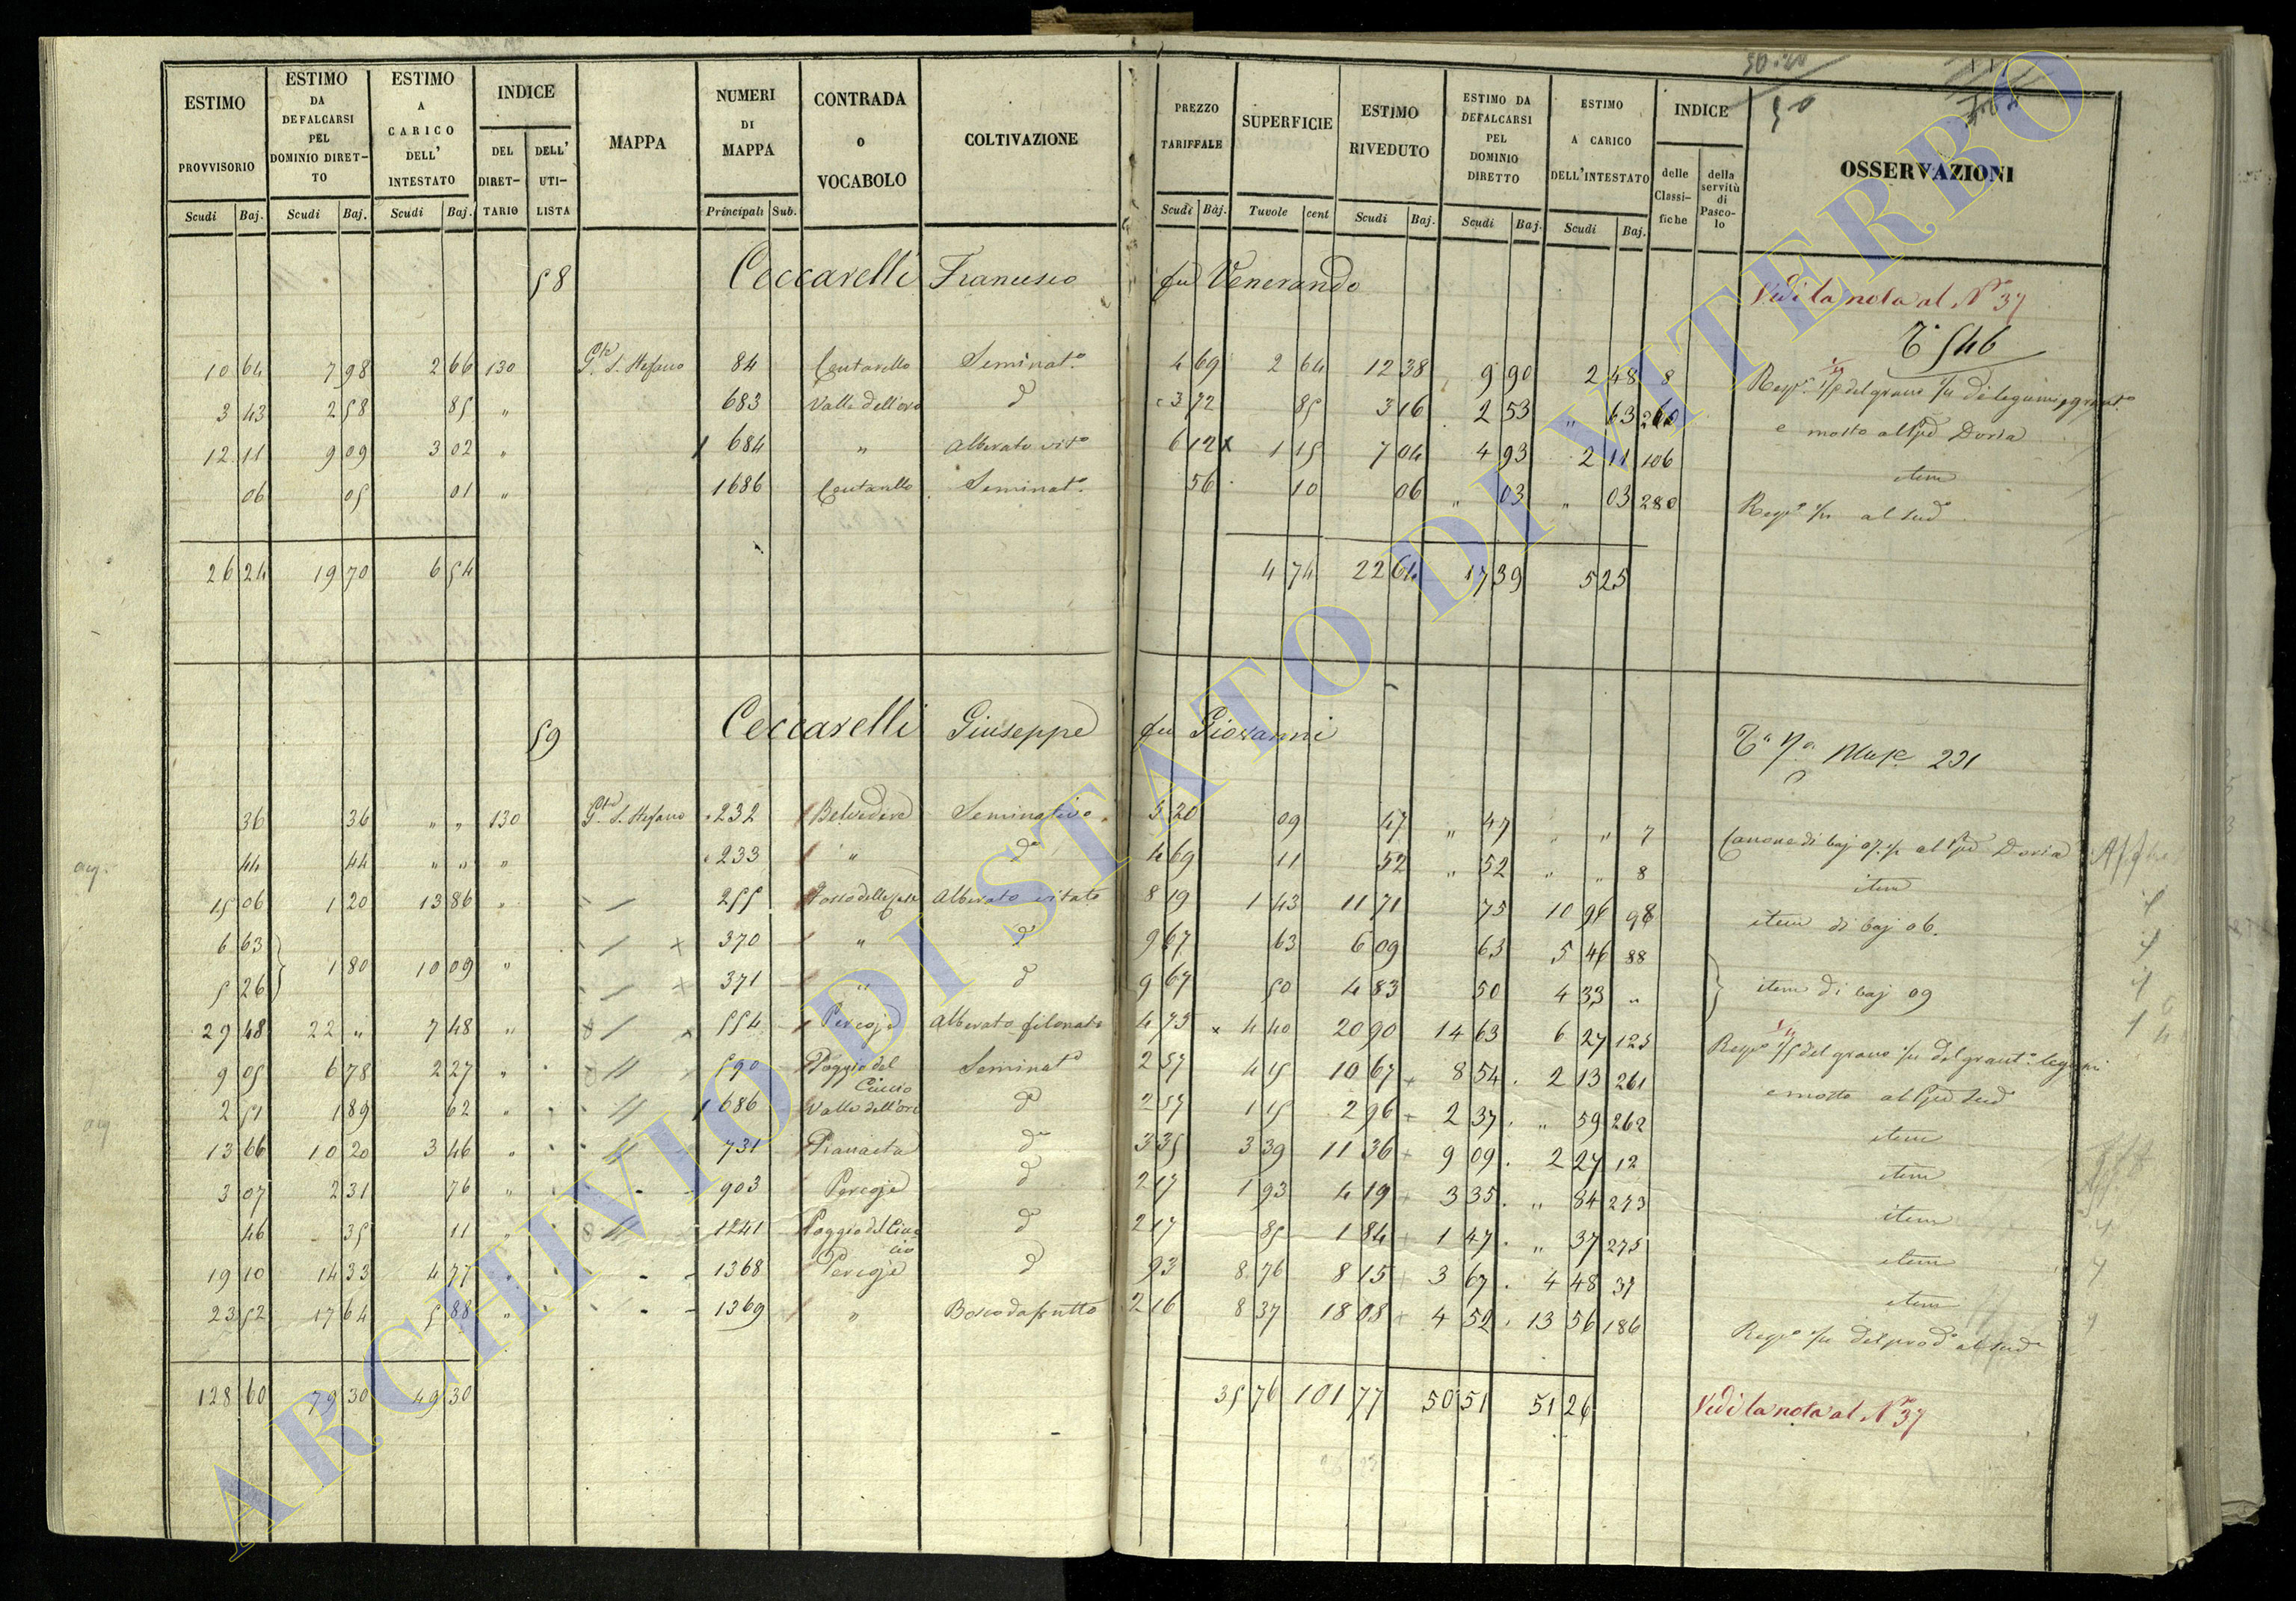 ESTIMO PROVVISORIO Scudi Baj. | ESTIMO DA DEFALCARSI PEL DOMINIO DIRETTO Scudi Baj. | ESTIMO A CARICO DELL' INTESTATO Scudi Baj. | INDICE DEL DIRETTARIO | DELL' UTILISTA | MAPPA | NUMERI DI MAPPA Principali Sub. | CONTRADA o VOCABOLO | COLTIVAZIONE | PREZZO TARIFFALE Scudi Baj. | SUPERFICIE Tavole cent | ESTIMO RIVEDUTO Scudi Baj. | ESTIMO DA DEFALCARSI PEL DOMINIO DIRETTO Scudi Baj. | ESTIMO A CARICO DELL'INTESTATO Scudi Baj. | INDICE delle Classifiche | della servitù di Pascolo | OSSERVAZIONI
58 Ceccarelli Francesco fu Venerando Vedi la nota al N° 37
546
10 64 | 7 98 | 2 66 | 130 | S. Stefano | 84 | Centarello | Seminat.o | 4 69 | 2 64 | 12 38 | 9 90 | 2 48 | 8
3 43 | 2 58 | 85 | " | 683 | Valle dell'oro | d | 3 72 | 85 | 3 16 | 2 53 | " 63 | 260 | e mosto al Doria
12 11 | 9 09 | 3 02 | " | 684 | " | Alberato vit.o | 6 12 | 1 15 | 7 04 | 4 93 | 2 11 | 106 | item
06 | 05 | 01 | " | 1686 | Centarello | Seminat.o | 56 | 10 | 06 | " 03 | " 03 | 280 | al sud.o
26 24 | 19 70 | 6 54 | 4 74 | 22 64 | 17 39 | 5 25
59 Ceccarelli Giuseppe fu Giovanni 231
36 | 36 | " " | 130 | S. Stefano | 232 | Belvedere | Seminativo | 5 20 | 09 | 47 | " 47 | " " | 7 | Canone di baj 07 ½ al Doria
44 | 44 | " " | " | 233 | " | d.o | 4 69 | 11 | 52 | " 52 | " " | 8 | item
15 06 | 1 20 | 13 86 | " | 255 | Alberato vitato | 8 19 | 1 43 | 11 71 | 75 | 10 96 | 98 | item di baj 06.
6 63 | 370 | " | d | 9 67 | 63 | 6 09 | 63 | 5 46 | 88
1 80 | 10 09 | "
5 26 | 371 | " | d | 9 67 | 50 | 4 83 | 50 | 4 33 | " | item di baj 09
29 48 | 22 " | 7 48 | " | 554 | Alberato filonato | 4 75 | 4 40 | 20 90 | 14 63 | 6 27 | 125
9 05 | 6 78 | 2 27 | " | 590 | Poggio del Ciuccio | Seminat.o | 2 57 | 4 15 | 10 67 | 8 54 | 2 13 | 261 | e mosto al sud.o
2 51 | 1 89 | 62 | " | 686 | Valle dell'oro | d | 2 57 | 1 15 | 2 96 | 2 37 | " 59 | 262 | item
13 66 | 10 20 | 3 46 | " | 731 | d.o | 3 35 | 3 39 | 11 36 | 9 09 | 2 27 | 12 | item
3 07 | 2 31 | 76 | " | 903 | d | 2 17 | 1 93 | 4 19 | 3 35 | " 84 | 273 | item
46 | 35 | 11 | " | 1241 | Poggio del Ciuccio | d | 2 17 | 85 | 1 84 | 1 47 | " 37 | 275 | item
19 10 | 14 33 | 4 77 | " | 1368 | d | 93 | 8 76 | 8 15 | 3 67 | 4 48 | 37 | item
23 52 | 17 64 | 5 88 | " | 1369 | " | Bosco da frutto | 2 16 | 8 37 | 18 08 | 4 52 | 13 56 | 186 | del prod.o al sud.o
128 60 | 79 30 | 49 30 | 35 76 | 101 77 | 50 51 | 51 26 | Vedi la nota al N° 37
ARCHIVIO DI STATO DI VITERBO